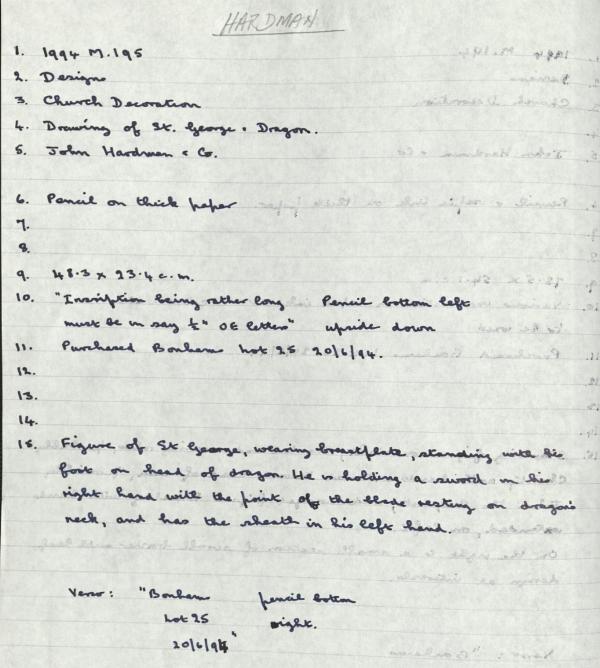 HARDMAN
1. 1994 M.195
2. Designs
3. Church Decoration
4. Drawing of St. George & Dragon.
5. John Hardman & Co.
6. Pencil on thick paper
7.
8.
9. 48.3 x 23.4 c.m.
10. "Inscription being rather long Pencil bottom left
must be in say ½" OE letters" upside down
11. Purchased Bonhams Lot 25 20/6/94.
12.
13.
14.
15. Figure of St George, wearing breastplate, standing with his
foot on head of dragon. He is holding a sword in his
right hand with the point of the blade resting on dragon's
neck, and has the sheath in his left hand.
Verso: "Bonhams pencil bottom
Lot 25 right.
20/6/94"